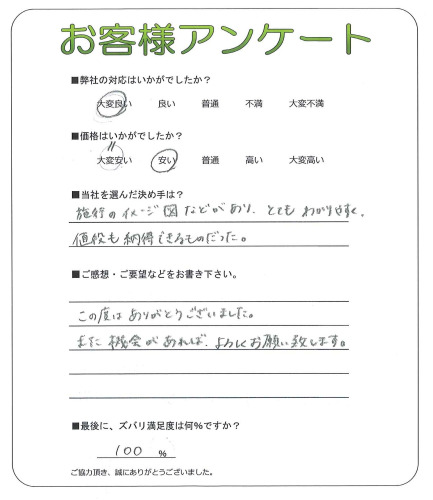 お客様アンケート
■弊社の対応はいかがでしたか？
大変良い 良い 普通 不満 大変不満
■価格はいかがでしたか？
大変安い 安い 普通 高い 大変高い
■当社を選んだ決め手は？
施行のイメージ図などがあり、とてもわかりやすく、
値段も納得できるものだった。
■ご感想・ご要望などをお書き下さい。
この度はありがとうございました。
また機会があれば、よろしくお願い致します。
■最後に、ズバリ満足度は何%ですか？
100 %
ご協力頂き、誠にありがとうございました。